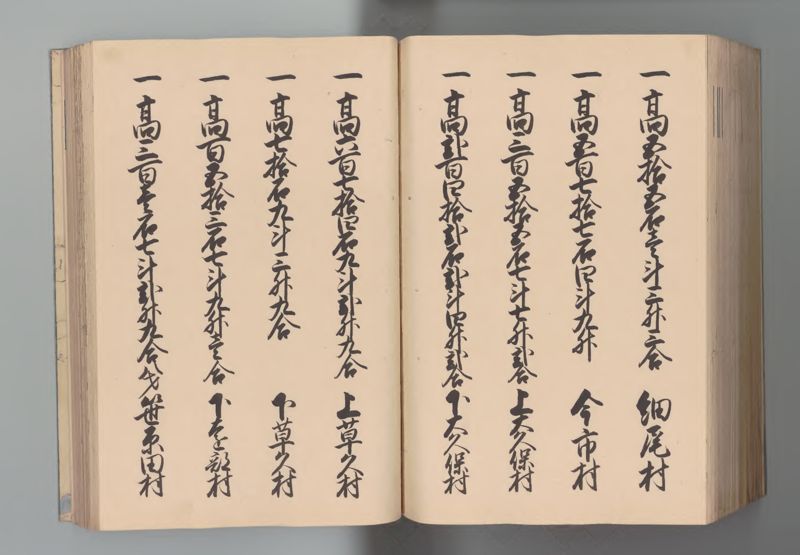 一高五拾五石壱斗三升三合 細尾村
一高五百七拾七石四斗九升 今市村
一高三百五拾五石七斗七升弐合 上大久保村
一高弐百四拾弐石弐斗四升弐合 下大久保村
一高六百七拾四石九斗弐升九合 上草久村
一高七拾石九斗三升九合 下草久村
一高百五拾三石七斗九升壱合 下遠部村
一高三百壱石七斗弐升九合 笹原田村